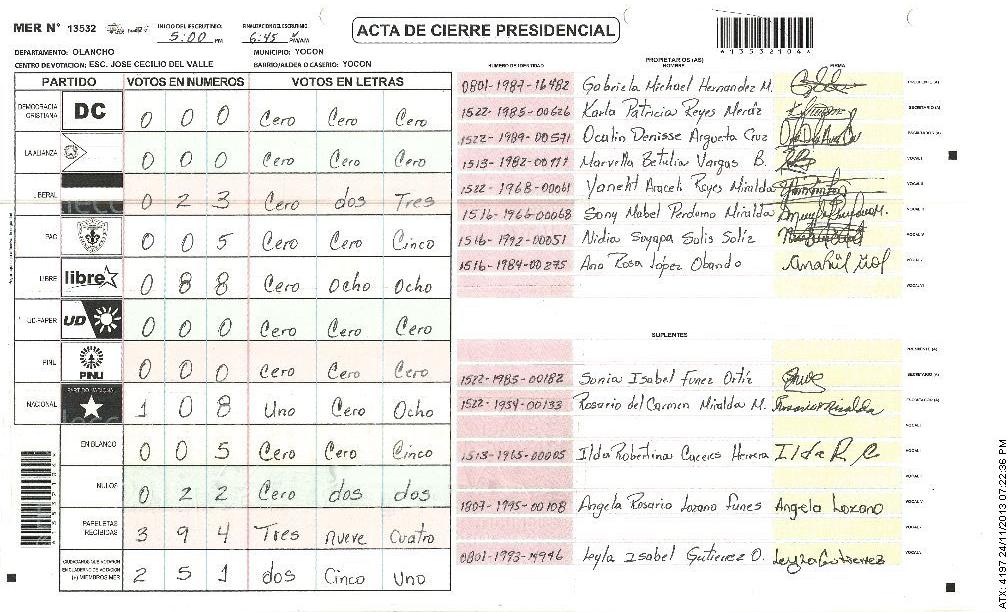 MER N° 13532 INICIO DEL ESCRUTINIO: 5:00 PM FINALIZACION DEL ESCRUTINIO: 6:45 PM/AM
ACTA DE CIERRE PRESIDENCIAL
DEPARTAMENTO: OLANCHO MUNICIPIO: YOCON
CENTRO DE VOTACION: ESC. JOSE CECILIO DEL VALLE BARRIO/ALDEA O CASERIO: YOCON
PARTIDO VOTOS EN NUMEROS VOTOS EN LETRAS
DEMOCRACIA CRISTIANA DC 0 0 0 Cero Cero Cero
LA ALIANZA 0 0 0 Cero Cero Cero
LIBERAL 0 2 3 Cero dos Tres
PAC 0 0 5 Cero Cero Cinco
LIBRE libre 0 8 8 Cero Ocho Ocho
UD-FAPER UD 0 0 0 Cero Cero Cero
PINU PINU 0 0 0 Cero Cero Cero
NACIONAL PARTIDO NACIONAL 1 0 8 Uno Cero Ocho
EN BLANCO 0 0 5 Cero Cero Cinco
NULOS 0 2 2 Cero dos dos
PAPELETAS RECIBIDAS 3 9 4 Tres nueve Cuatro
CIUDADANOS QUE VOTARON EN CUADERNO DE VOTACION (+) MIEMBROS MER 2 5 1 dos Cinco Uno
PROPIETARIOS (AS)
NUMERO DE IDENTIDAD NOMBRE FIRMA
0801-1987-16482 Gabriela Michael Hernandez M. PRESIDENTE (A)
1522-1985-00626 Karla Patricia Reyes Meraz SECRETARIO (A)
1522-1989-00571 Ocalin Denisse Argueta Cruz ESCRUTADOR (A)
1513-1982-00177 Marvella Betulia Vargas B. VOCAL I
1522-1968-00061 Yaneht Araceli Reyes Miralda VOCAL II
1516-1966-00068 Sony Mabel Perdomo Miralda
1516-1992-00051 Nidia Suyapa Solis Soliz VOCAL IV
1516-1984-00275 Ana Rosa López Obando VOCAL V
VOCAL VI
SUPLENTES
PRESIDENTE (A)
1522-1985-00182 Sonia Isabel Funez Ortiz SECRETARIO (A)
1522-1954-00133 Rosario del Carmen Miralda M. Rosario Miralda ESCRUTADOR (A)
VOCAL I
1513-1965-00005 Ilda Robertina Caceres Herrera Ilda R C
1807-1995-00108 Angela Rosario Lozano Funes Angela Lozano VOCAL IV
0801-1993-14946 Leyla Isabel Gutierrez O. Leyla Gutierrez
ATX: 4197 24/11/2013 07:22:36 PM